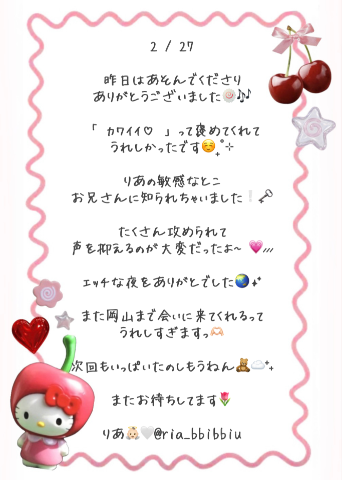 2 / 27
昨日はあそんでくださり
ありがとうございました🍥🎶
「 カワイイ♡ 」って褒めてくれて
うれしかったです☺️₊˚⊹
りあの敏感なとこ
お兄さんに知られちゃいました❕🗝
たくさん攻められて
声を抑えるのが大変だったよ~ 💗〃
エッチな夜をありがとでした🌏₊˚
また岡山まで会いに来てくれるって
うれしすぎますっ🫶🏻
次回もいっぱいたのしもうねん🧸☁️⁺₊
またお待ちしてます🌷
りあ👶🏻🤍@ria_bbibbiu